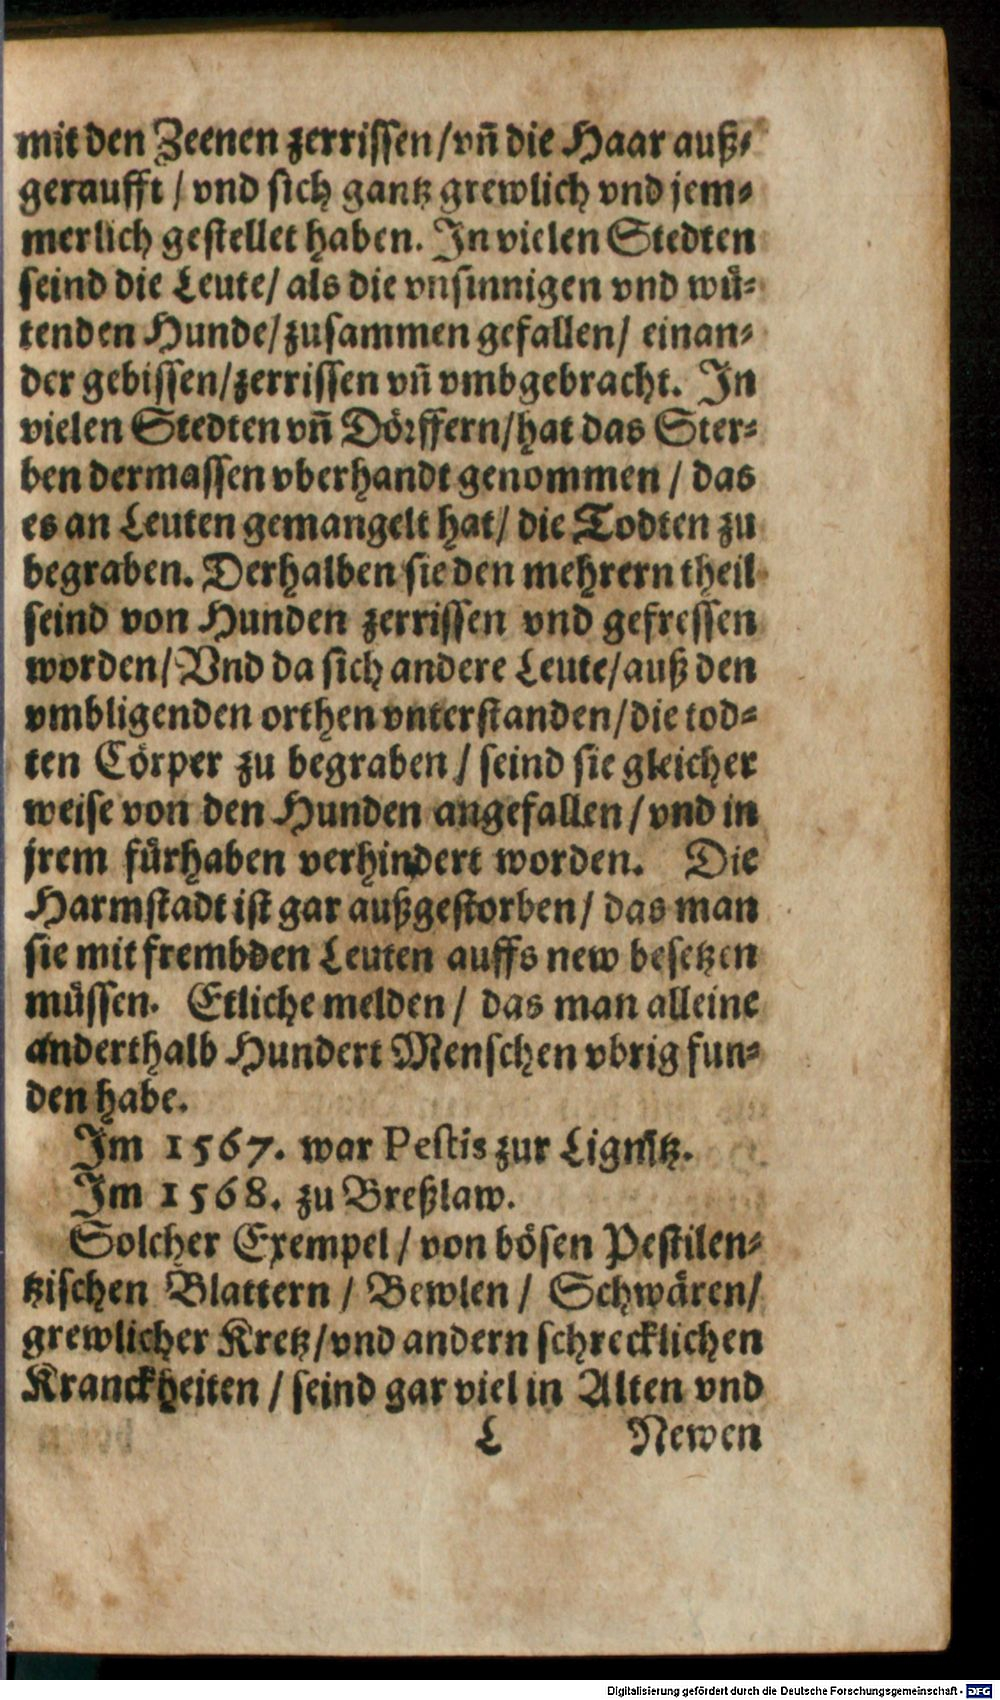 mit den Zeenen zerrissen / vñ die Haar auß⸗
geraufft / vnd sich gantz grewlich vnd jem⸗
merlich gestellet haben. In vielen Stedten
seind die Leute / als die vnsinnigen vnd wuͤ⸗
tenden Hunde / zusammen gefallen / einan⸗
der gebissen / zerrissen vñ vmbgebracht. In
vielen Stedten vñ Doͤrffern / hat das Ster⸗
ben dermassen vberhandt genommen / das
es an Leuten gemangelt hat / die Todten zu
begraben. Derhalben sie den mehrern theil
seind von Hunden zerrissen vnd gefressen
worden / Vnd da sich andere Leute / auß den
vmbligenden orthen vnterstanden / die tod⸗
ten Coͤrper zu begraben / seind sie gleicher
weise von den Hunden angefallen / vnd in
jrem fuͤrhaben verhindert worden. Die
Harmstadt ist gar außgestorben / das man
sie mit frembden Leuten auffs new besetzen
muͤssen. Etliche melden / das man alleine
anderthalb Hundert Menschen vbrig fun⸗
den habe.
Im 1567. war Pestis zur Lignitz.
Im 1568. zu Breßlaw.
Solcher Exempel / von boͤsen Pestilen⸗
tzischen Blattern / Bewlen / Schwaͤren /
grewlicher Kretz / vnd andern schrecklichen
Kranckheiten / seind gar viel in Alten vnd
L Newen
Digitalisierung gefördert durch die Deutsche Forschungsgemeinschaft - DFG